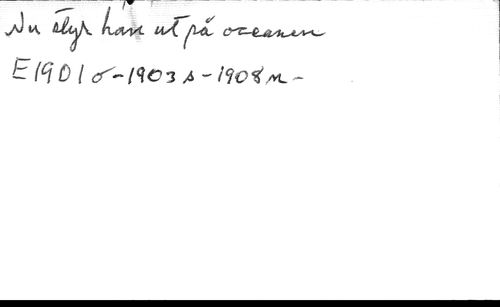 Nu styr han ut på oceanen
E1901σ-1903s-1908m-